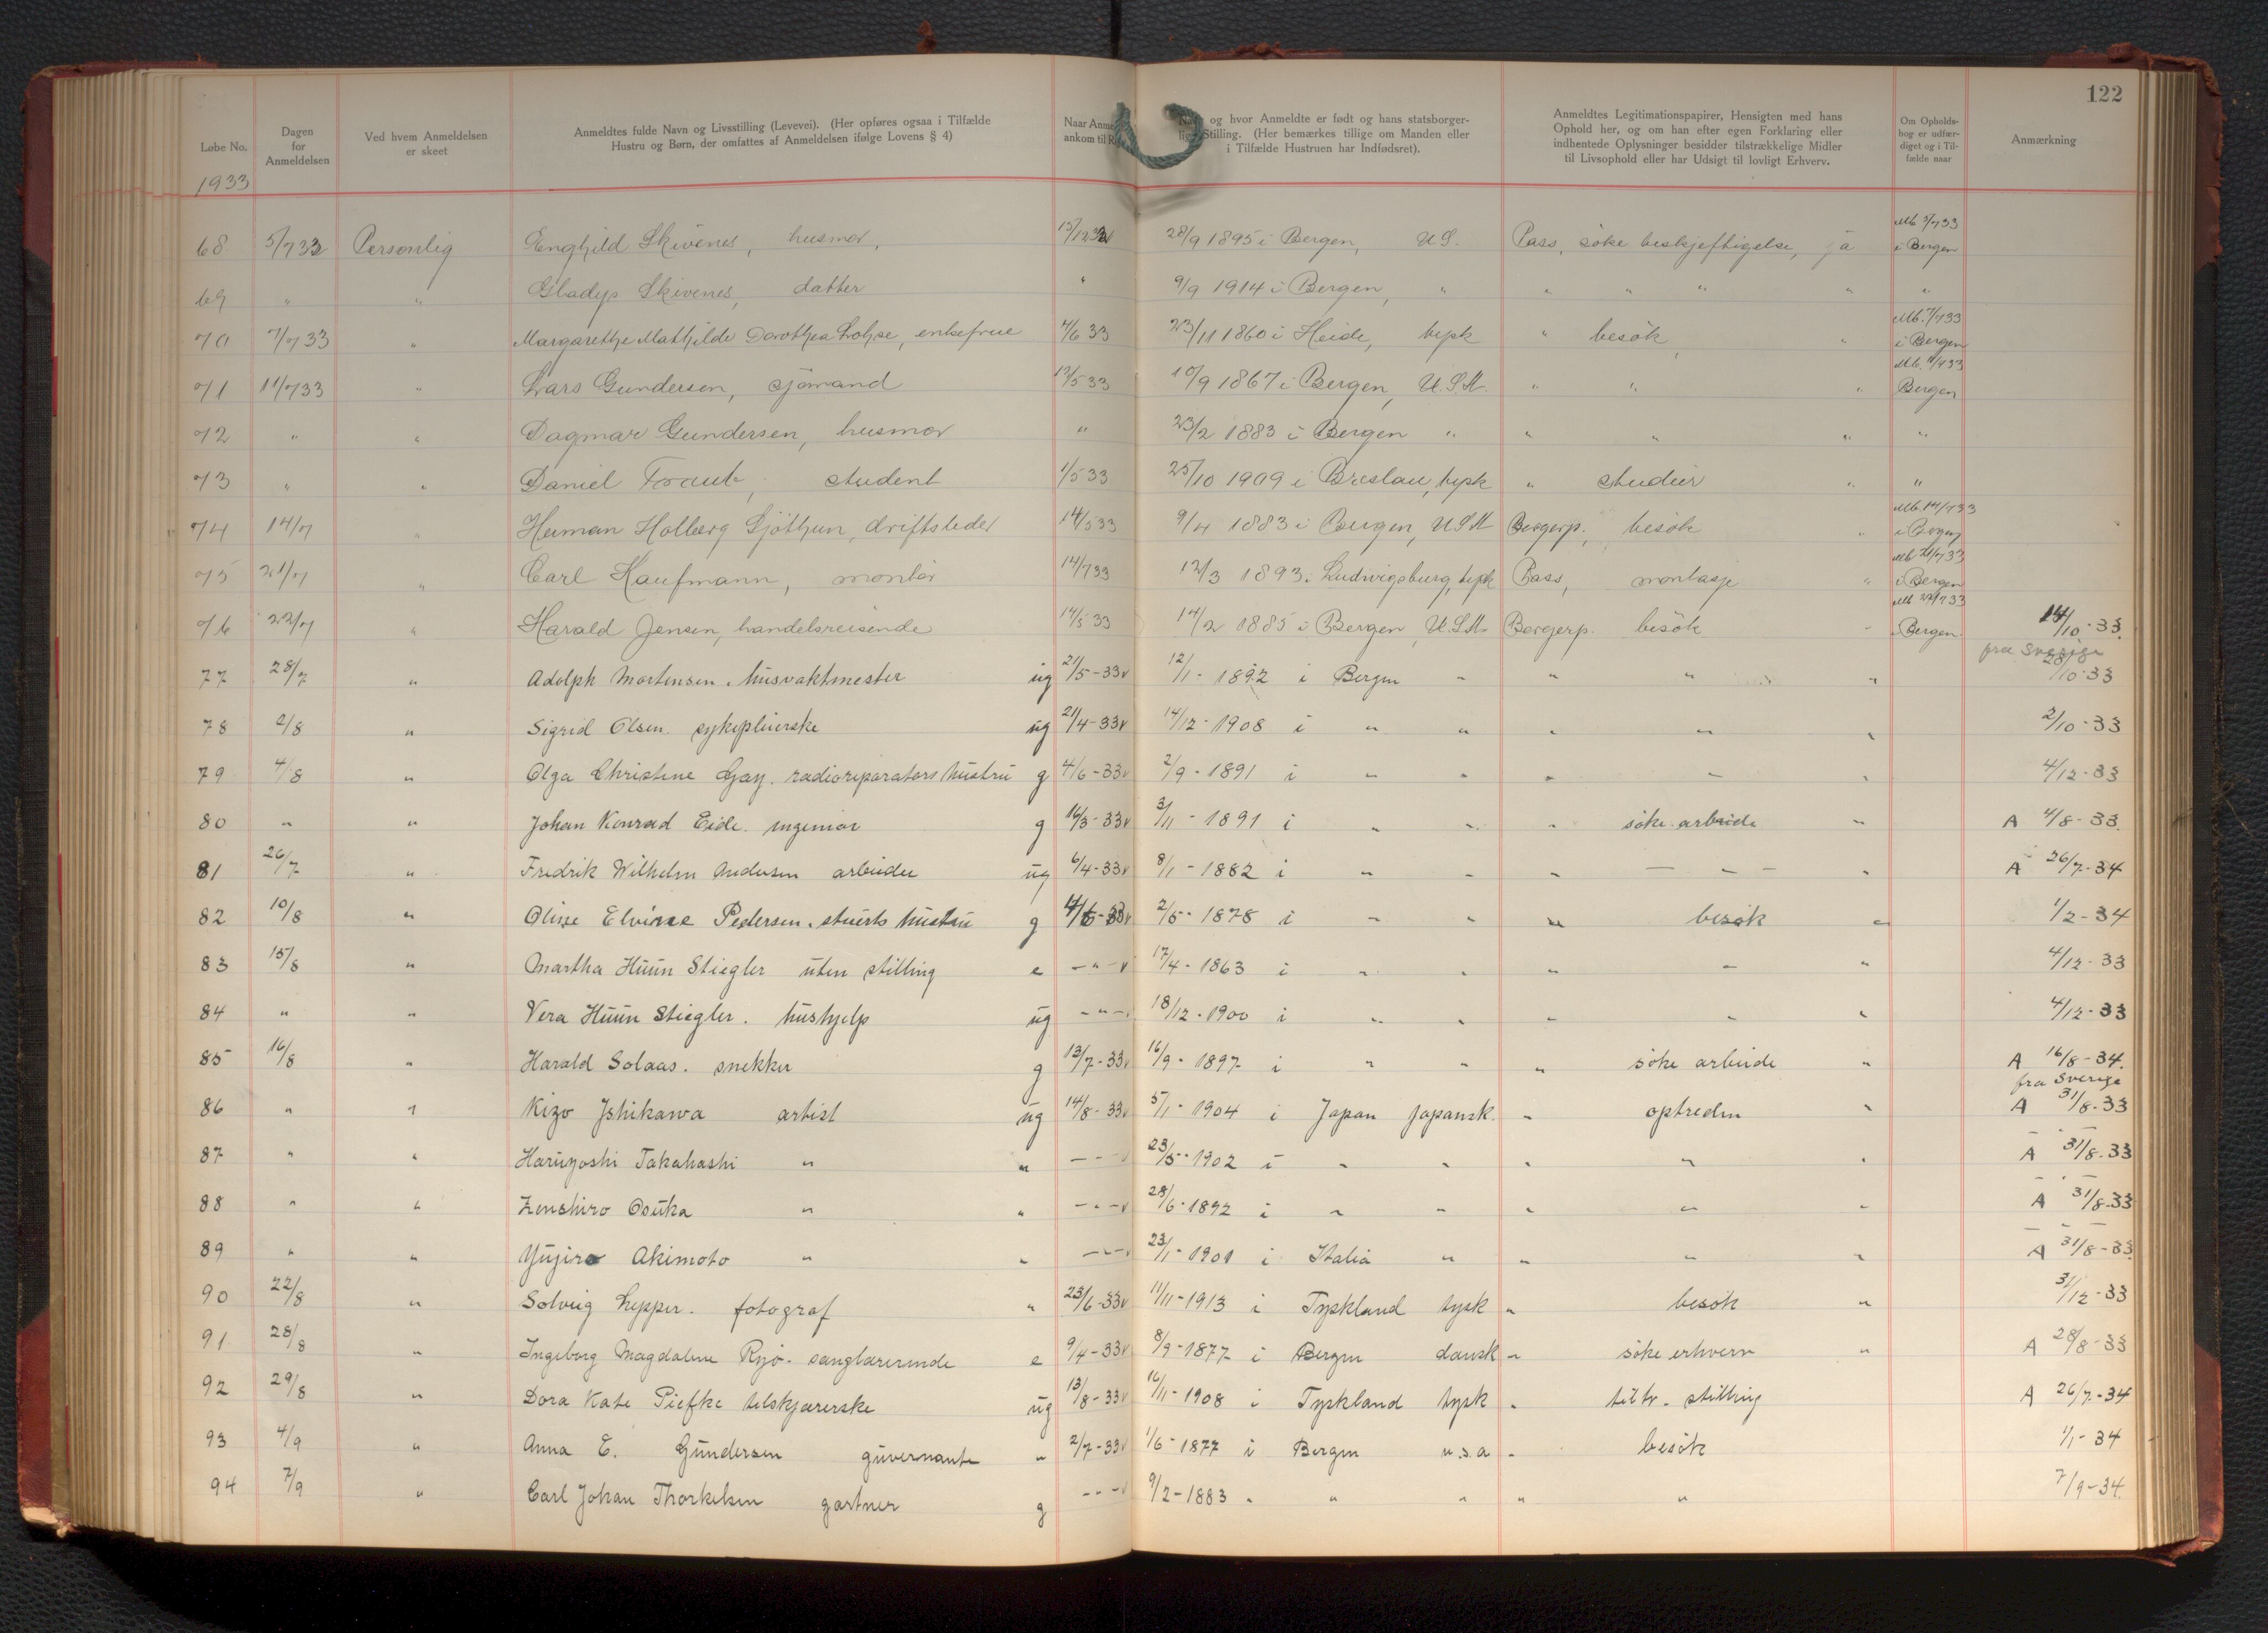 122
Løbe No.
Dagen
for
Anmeldelsen
Ved hvem Anmeldelsen
er skeet
Anmeldtes fulde Navn og Livsstilling (Levevei). (Her opføres ogsaa i Tilfælde
Hustru og Børn, der omfattes af Anmeldelsen ifølge Lovens § 4)
Naar Anme
ankom til R
og hvor Anmeldte er født og hans statsborger-
lige Stilling. (Her bemærkes tillige om Manden eller
i Tilfælde Hustruen har Indfødsret).
Anmeldtes Legitimationspapirer, Hensigten med hans
Ophold her, og om han efter egen Forklaring eller
indhentede Oplysninger besidder tilstrækkelige Midler
til Livsophold eller har Udsigt til lovligt Erhverv.
Om Opholds-
bog er udfær-
diget og i Til-
fælde naar
Anmærkning
1933
68 5/7 33 Personlig Enghild Skivenes, husmor, 28/9 1895 i Bergen, U.S. Pass, søke beskjeftigelse, ja Mb 5/7 33 i Bergen
69 " " Gladys Skivenes, datter " 9/9 1914 i Bergen, " " " " " "
70 7/7 33 " Margarethe Mathilde Dorothea Lohse, enkefrue 4/6 33 23/11 1860 i Heide, tysk " besøk " Mb. 7/7 33 i Bergen
71 11/7 33 " Lars Gundersen, sjømand 12/5 33 10/9 1867 i Bergen, U.S.A. " " " Mb. 11/7 33 Bergen
72 " " Dagmar Gundersen, husmor " 23/2 1883 i Bergen " " " " "
73 " " Daniel Traub, student 1/5 33 25/10 1909 i Breslau, tysk " studier " "
74 14/7 " Herman Holberg Sjøthun, driftsleder 14/5 33 9/4 1883 i Bergen, U.S.A. Borgerp., besøk " Mb. 14/7 33 i Bergen
75 21/7 " Carl Kaufmann, montør 14/7 33 12/3 1893 i Ludwigsburg, tysk Pass, montasje " Mb 21/7 33 i Bergen
76 22/7 " Harald Jensen, handelsreisende 14/5 33 14/2 1885 i Bergen, U.S.A. Borgerp. besøk " Mb 22/7 33 i Bergen 14/10-33.
fra Sverige
77 28/7 " Adolph Mortensen. husvaktmester ug 21/5-33 v 12/1-1892 i Bergen " " " " 28/10-33
78 2/8 " Sigrid Olsen. sykepleierske ug 21/4-33 v 14/12-1908 i " " " " " 2/10-33
79 4/8 " Olga Christine Gay. radioreparatørs hustru g 4/6-33 v 2/9-1891 i " " " " " 4/12-33
80 " " Johan Konrad Eide. ingeniør g 16/3-33 v 3/11-1891 i " " " søke arbeide " A 4/8-33.
81 26/7 " Fredrik Wilhelm Andersen arbeider ug 6/4-33 v 8/1-1882 i " " " — " — " A 26/7-34
82 10/8 " Oline Elvine Pedersen. stuerts hustru g 4/6-33 v 2/5-1878 i " " " besøk " 1/2-34
83 15/8 " Martha Huun Stiegler uten stilling e - " - v 17/4-1863 i " " " " " 4/12-33
84 " " Vera Huun Stiegler. hushjelp ug - " - 18/12-1900 i " " " " " 4/12-33
85 16/8 " Harald Solaas. snekker g 13/7-33 v 16/9-1897 i " " " søke arbeide " A 16/8-34.
fra Sverige
86 " " Kizo Ishikawa artist ug 14/8-33 v 5/1-1904 i Japan japansk. " optreden " A 31/8-33
87 " " Haruyoshi Takahashi " " - " - v 23/5-1902 i " " " " " A 31/8-33
88 " " Zenshiro Osuka " " - " - v 28/6-1892 i " " " " " A 31/8-33
89 " " Yujiro Akimoto " " - " - v 23/1-1901 i Italia " " " " A 31/8-33
90 22/8 " Solveig Lepper. fotograf " 23/6-33 v 11/11-1913 i Tyskland tysk " besøk " 31/12-33
91 28/8 " Ingeborg Magdalene Ryø. sanglærerinde e 9/4-33 v 8/9-1877 i Bergen dansk " søke erhverv " A 28/8-33
92 29/8 " Dora Kate Piefke tilskjærerske ug 13/8-33 v 16/11-1908 i Tyskland tysk " tiltr. stilling A 26/7-34
93 4/9 " Anna E. Gundersen guvernante " 2/7-33 v 1/6-1877 i Bergen u.s.a " besøk 1/1-34
94 7/9 " Carl Johan Thorkelsen gartner g - " - v 9/2-1883 " " " " " 7/9-34.